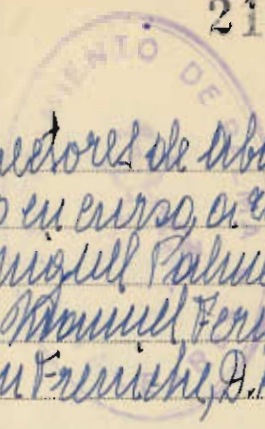 21
MIENTO DE
ectores de aba
o en curso, a
Miguel Palm
Manuel Fer
n Freniche, D.